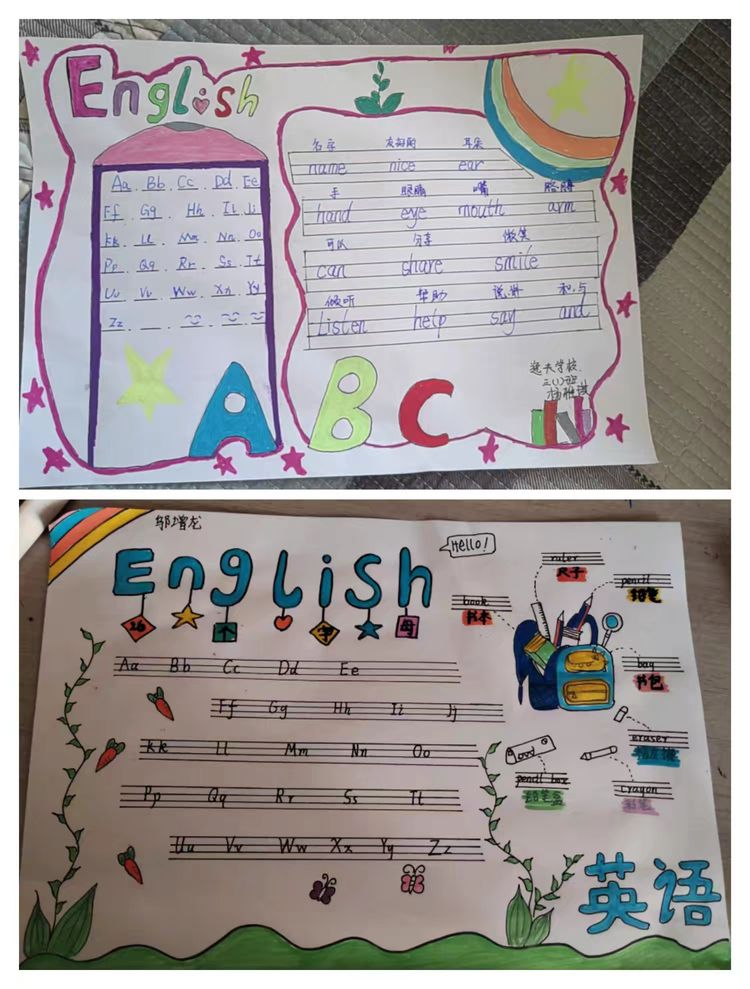 English
Aa Bb Cc Dd Ee
Ff Gg Hh Ii Jj
kk Ll Mm Nn Oo
Pp Qq Rr Ss Tt
Uu Vv Ww Xx Yy
Zz
名字 友好的 耳朵
name nice ear
手 眼睛 嘴 胳膊
hand eye mouth arm
可以 分享 微笑
can share smile
倾听 帮助 说,讲 和,与
Listen help say and
A B C
逸夫学校
三(1)班
邬增龙
English
Hello!
26个字母
Aa Bb Cc Dd Ee
Ff Gg Hh Ii Jj
kk Ll Mm Nn Oo
Pp Qq Rr Ss Tt
Uu Vv Ww Xx Yy Zz
ruler
尺子
pencil
铅笔
book
书本
bag
书包
eraser
pencil box
铅笔盒
crayon
英语